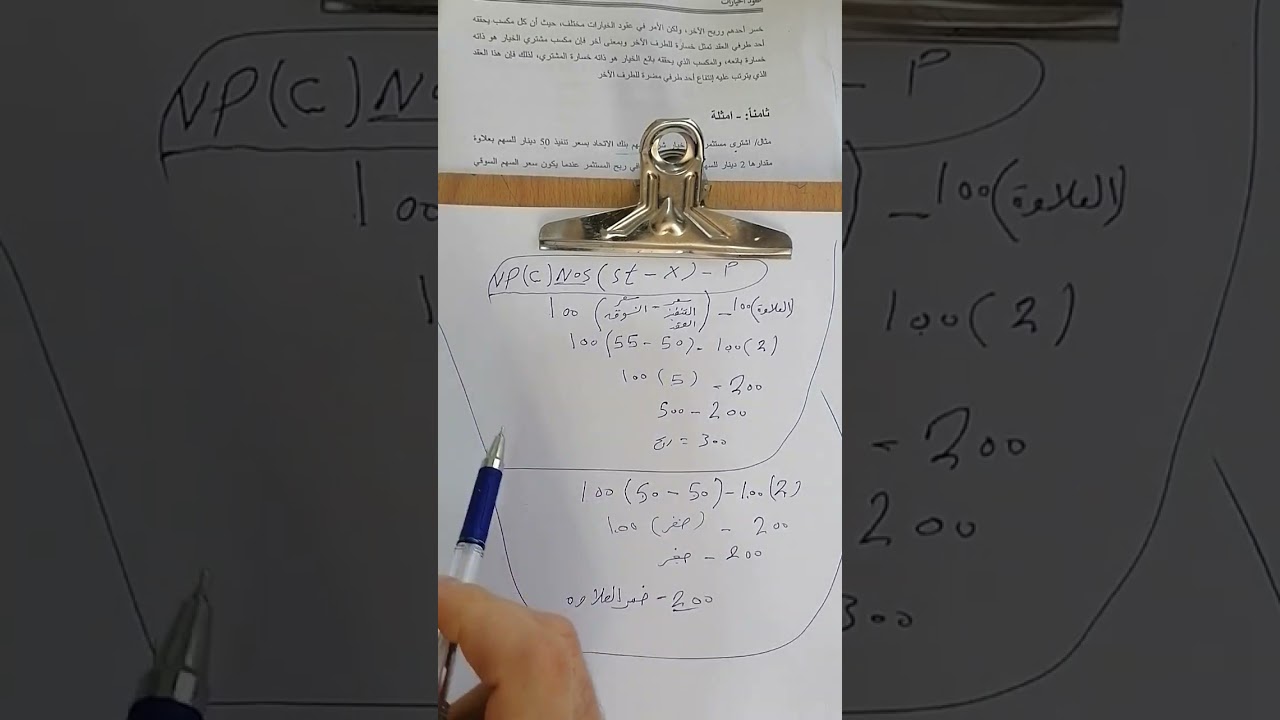 عقود الخيارات
خسر أحدهم وربح الآخر، ولكن الأمر في عقود الخيارات مختلف، حيث أن كل مكسب يحققه
أحد طرفي العقد تمثل خسارة للطرف الآخر وبمعنى آخر فإن مكسب مشتري الخيار هو ذاته
خسارة بائعه، والمكسب الذي يحققه بائع الخيار هو ذاته خسارة المشتري، لذلك فإن هذا العقد
الذي يترتب عليه إنتفاع أحد طرفي مضرة للطرف الآخر
ثامناً: - امثلة
مثال/ اشترى بنك الاتحاد بسعر تنفيذ 50 دينار للسهم بعلاوة
مقدارها 2 دينار ربح المستثمر عندما يكون سعر السهم السوقي
NP(C) NoS (St - X) - P
100 (سعر السوقه - سعر التنفيذ العقد) - 100 (العلاوة)
100 (55 - 50) - 100 (2)
100 (5) - 200
500 - 200
ربح = 300
100 (50 - 50) - 100 (2)
100 (صفر) - 200
صفر - 200
خسر العلاوه - 200
NP(C) No - P
100 - 100 (العلاوة)
100 (2)
- 200
200
300